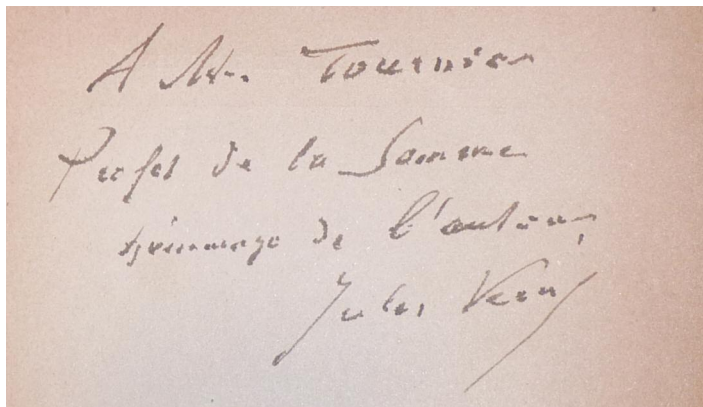 A Mr. Tournier
Préfet de la Somme
hommage de l'auteur,
Jules Verne